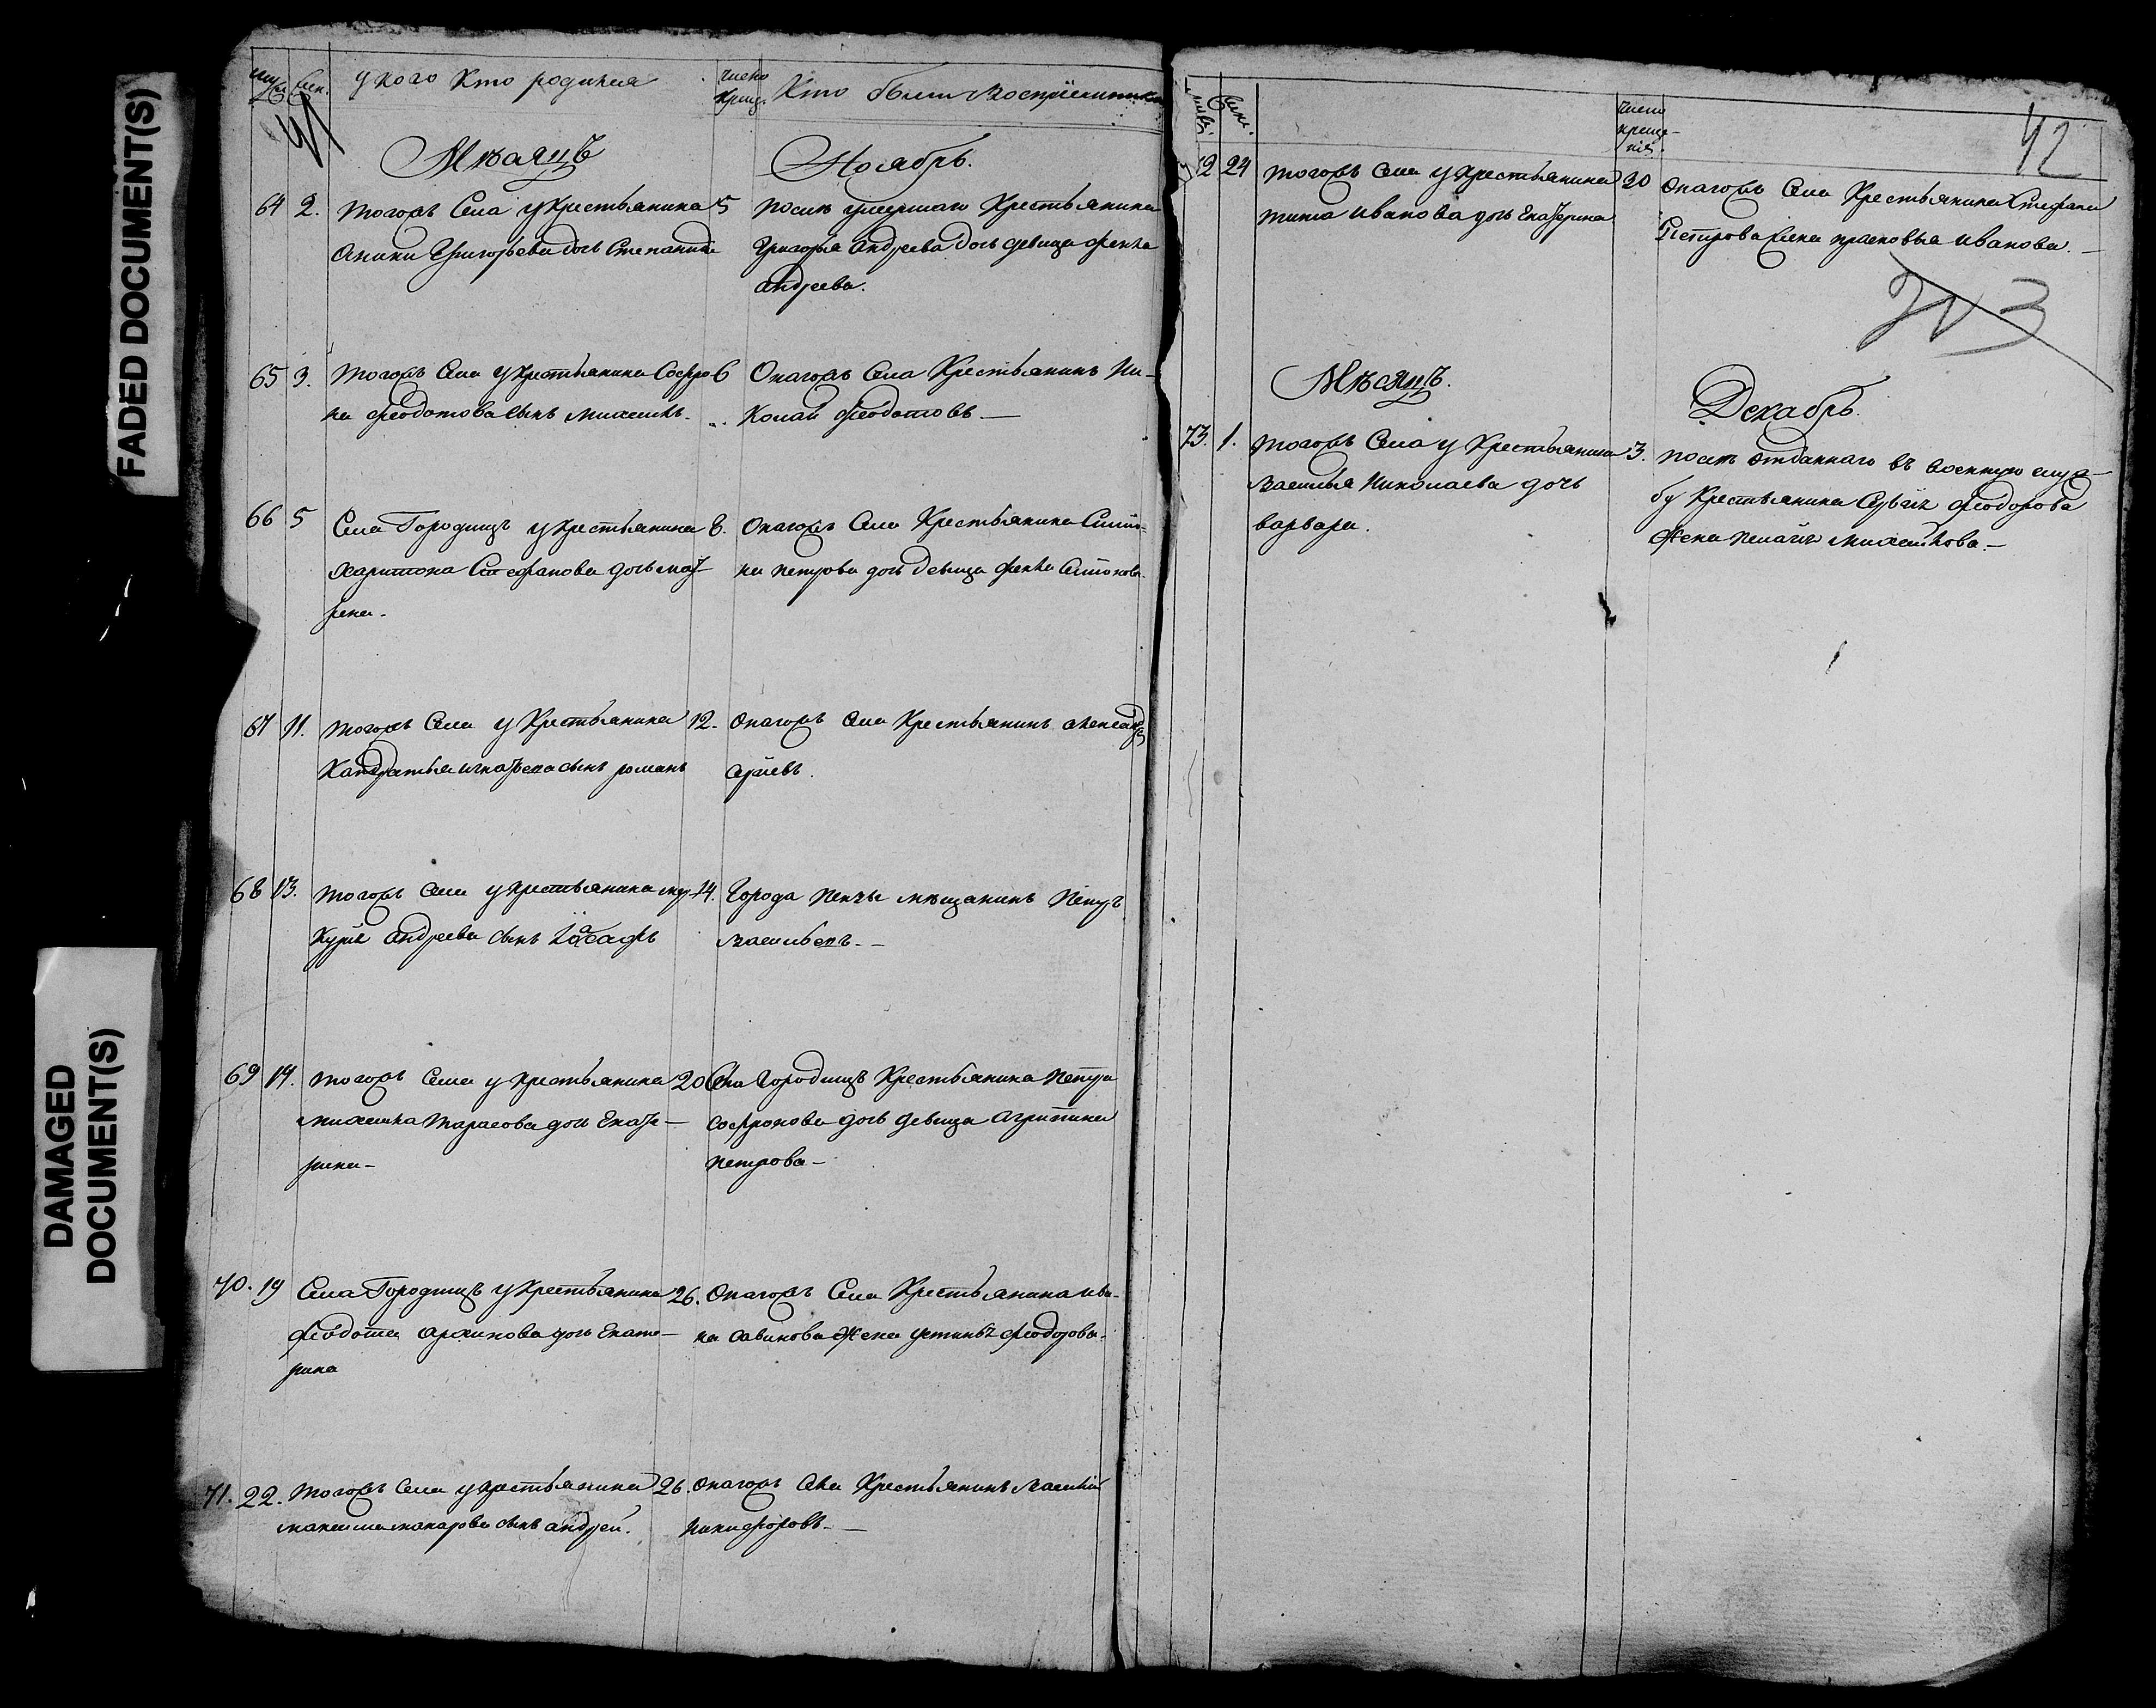 FADED DOCUMENT(S)
DAMAGED
DOCUMENT(S)
у кого кто родился
число
крещ.
Кто были воспріемники
41
Мѣсяцъ
Ноябрь.
64 2. тогожъ села у крестьянина
Аники Григорьева дочь Степанида
5 после умершаго крестьянина
Григорья Андреева дочь девица
андреева.
65 3. тогожъ села у крестьянина Софро
на Феодотова сынъ михаилъ.
6 Онагожъ села Крестьянинъ Ни-
колай Феодотовъ —
66 5 Села Городищъ у крестьянина
харитона Стефанова дочь мат
рена.
8. Онагожъ села Крестьянина
на петрова дочь девица
67 11. тогожъ села у крестьянина
Кандратья игнатьева сынъ романъ
12. онагожъ села Крестьянинъ александръ
68 13. тогожъ села у крестьянина мер
курiя андреева сынъ Iоасафъ
14. Города Пензы мещанинъ Петръ
васильевъ. —
69 14. тогожъ села у крестьянина
михаила тарасова дочь Екате —
рина —
20 Села Городищъ Крестьянина Петра
софронова дочь девица агрипина
петрова —
70. 19 Села Городищъ у крестьянина
Феодота архипова дочь Екате —
рина
26. Онагожъ села Крестьянина ива-
на савинова жена устинья Феодорова.
71. 22. тогожъ села у крестьянина
максима макарова сынъ андрей.
26. онагожъ села Крестьянинъ василiй
никифоровъ. —
число
креще-
нiя.
42
72 24 тогожъ села у крестьянина
тита иванова дочь Екатерина
30 онагожъ села крестьянина Стефана
Петрова жена прасковья иванова. —
Мѣсяцъ.
Декабрь.
73. 1. тогожъ села у крестьянина
василья Николаева дочь
варвара.
3. после отданнаго въ военную служ-
бу крестьянина Феодорова
жена михайлова. —